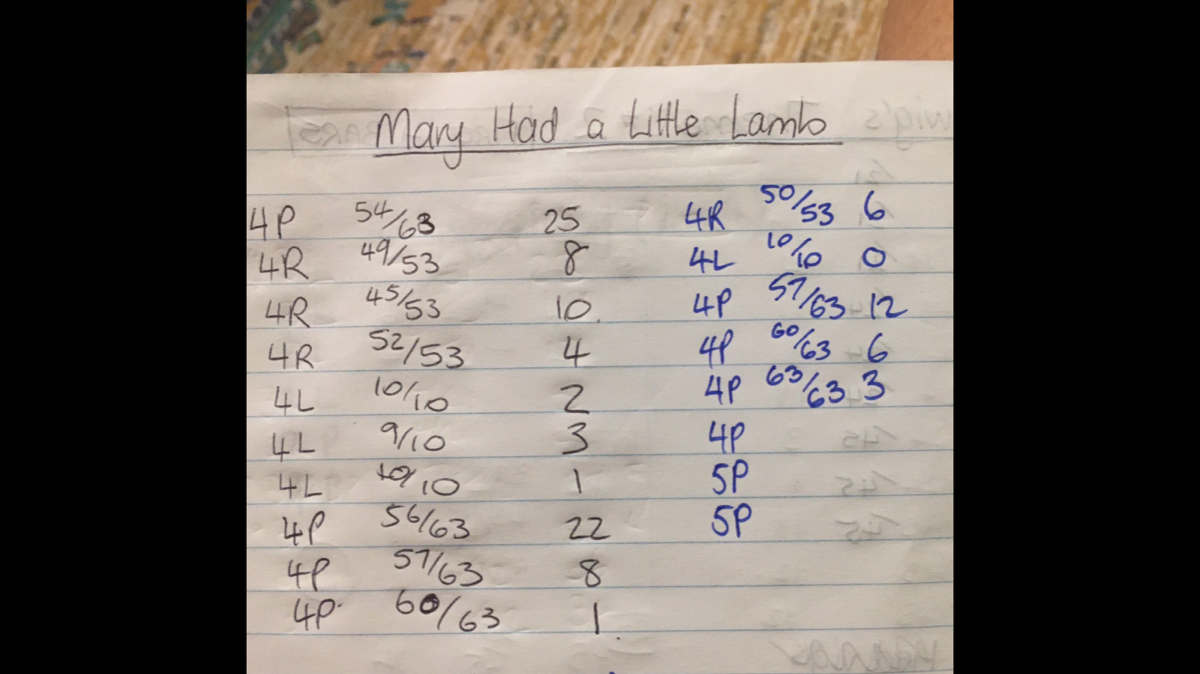 Mary Had a Little Lamb
4P 54/63 25
4R 49/53 8
4R 45/53 10
4R 52/53 4
4L 10/10 2
4L 9/10 3
4L 10/10 1
4P 56/63 22
4P 57/63 8
4P 60/63 1
4R 50/53 6
4L 10/10 0
4P 57/63 12
4P 60/63 6
4P 63/63 3
4P
5P
5P